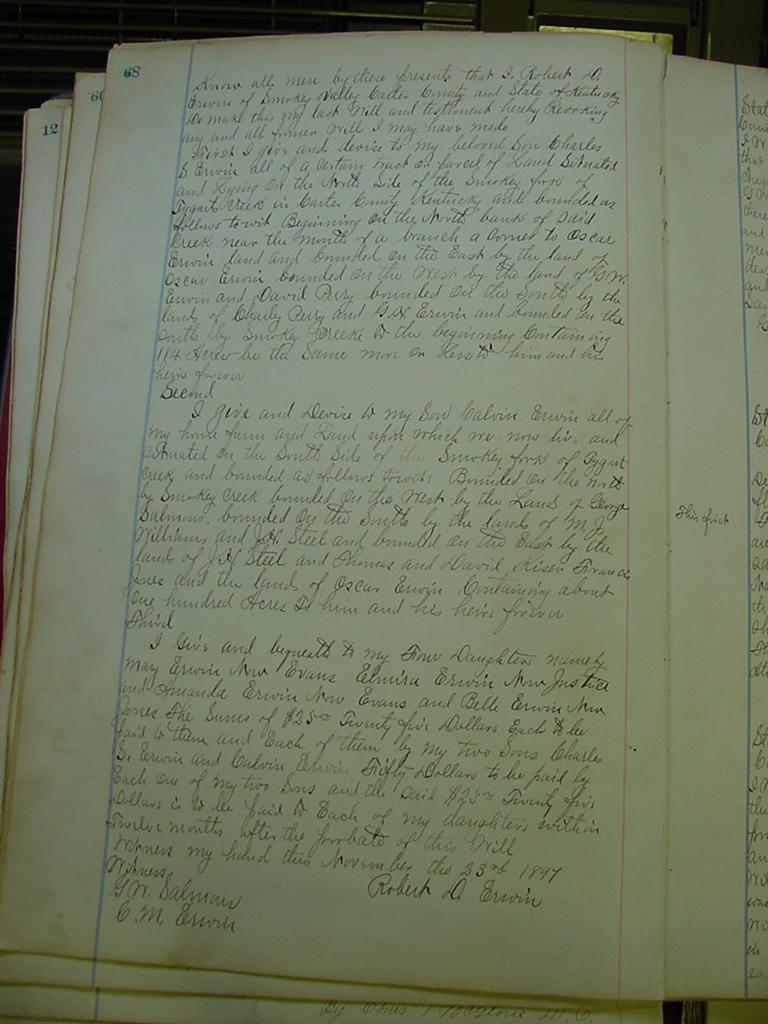 68
Know all men by these presents that I, Robert D.
Erwin of Smokey Valley Carter County and State of Kentucky
Do make this my last Will and testiment hereby Revoking
any and all former Will I may have made
First I give and devise to my beloved Son Charles
S Erwin all of a certain tract or parcel of Land Situated
and Lying on the North Side of the Smokey fork of
Tygart Creek in Carter County Kentucky and bounded as
follows to wit Beginning on the North bank of said
Creek near the mouth of a branch a Corner to Oscar
Erwin land and bounded on the East by the land of
Oscar Erwin bounded on the West by the land of G.W.
Erwin and David Perry bounded on the South by the
lands of Charly Perry and G.H. Erwin and bounded on the
South by Smokey Creek to the beginning Containing
114 Acres be the Same more or Less to him and his
heirs forever
Second
I give and Devise to my Son Calvin Erwin all of
my home farm and Land upon which we now live and
situated on the South Side of the Smokey fork of Tygart
Creek and bounded as follows towit: Bounded on the north
by Smokey Creek bounded on the West by the Land of George
Salmons. bounded on the South by the lands of M.J.
Williams and J.H. Steel and bounded on the East by the
lands of J.H. Steel and Thomas and David Kiser Francis
Jones and the lands of Oscar Erwin Containing about
One hundred Acres To him and his heirs forever
Third
I Give and bequeath to my Four Daughters namely
Mary Erwin Now Evans Elmira Erwin Now Justice
and Amanda Erwin Now Evans and Belle Erwin Now
Jones The Sums of $25.00 Twenty five Dollars Each to be
paid to them and Each of them by my two Sons Charles
S. Erwin and Calvin Erwin Fifty Dollars to be paid by
Each One of my two Sons and the said $25.00 Twenty five
Dollars is to be paid to Each of my daughters within
Twelve months after the probate of this Will
Witness my hand this November the 23rd 1897
Witness Robert D. Erwin
G.W. Salmon
C.M. Erwin
12
This first